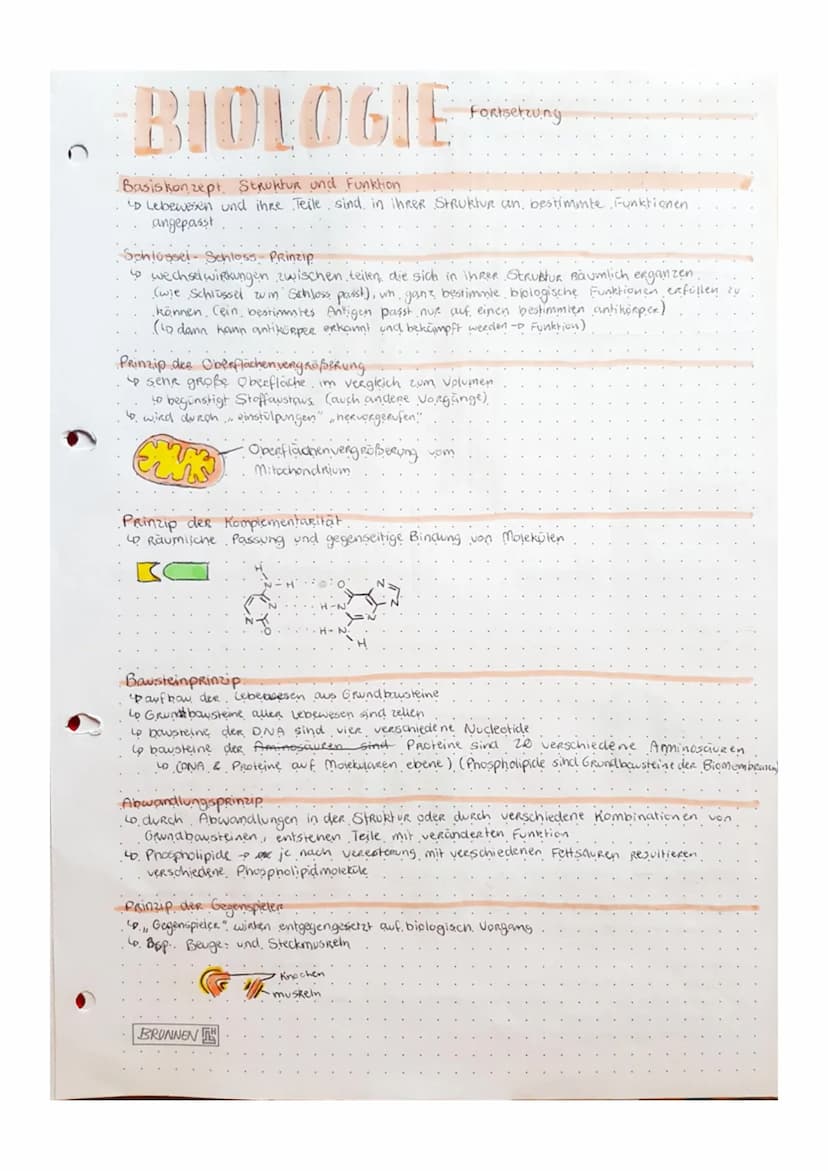 BIOLOGIE Fortsetzung
Basiskonzept Struktur und Funktion
↳ Lebewesen und ihre Teile sind in ihrer Struktur an bestimmte Funktionen
angepasst
Schlüssel-Schloss-Prinzip
↳ wechselwirkungen zwischen teilen, die sich in ihrer Struktur räumlich ergänzen
(wie Schlüssel zum Schloss passt), um ganz bestimmte biologische Funktionen erfüllen zu
können. (ein bestimmtes Antigen passt nur auf einen bestimmten antikörper)
(↳ dann kann antikörper erkannt und bekämpft werden → Funktion)
Prinzip der Oberflächenvergrößerung
↳ sehr große Oberfläche im vergleich zum Volumen
↳ begünstigt Stoffaustaus (auch andere Vorgänge)
↳ wird durch „einstülpungen" „hervorgerufen"
Oberflächenvergrößerung vom
Mitochondrium
Prinzip der Komplementarität
↳ Räumliche Passung und gegenseitige Bindung von Molekülen
H
N-H O N
N H-N N
N N
O H-N
H
Bausteinprinzip
↳ aufbau der Lebewesen aus Grundbausteine
↳ Grundbausteine aller Lebewesen sind zellen
↳ bausteine der DNA sind vier verschiedene Nucleotide
↳ bausteine der Aminosäuren sind Proteine sind 20 verschiedene Amminosäuren
↳ (DNA & Proteine auf Molekularen ebene) (Phospholipide sind Grundbausteine der Biomembranen)
Abwandlungsprinzip
↳ durch Abwandlungen in der Struktur oder durch verschiedene Kombinationen von
Grundbausteinen, entstehen Teile mit veränderten Funktion
↳ Phospholipide → je nach veresterung mit verschiedenen Fettsäuren resultieren
verschiedene Phospholipidmoleküle
Prinzip der Gegenspieler
↳ „Gegenspieler" wirken entgegengesetzt auf biologisch. Vorgang
↳ Bsp. Beuge- und Steckmuskeln
Knochen
muskeln
BRUNNEN